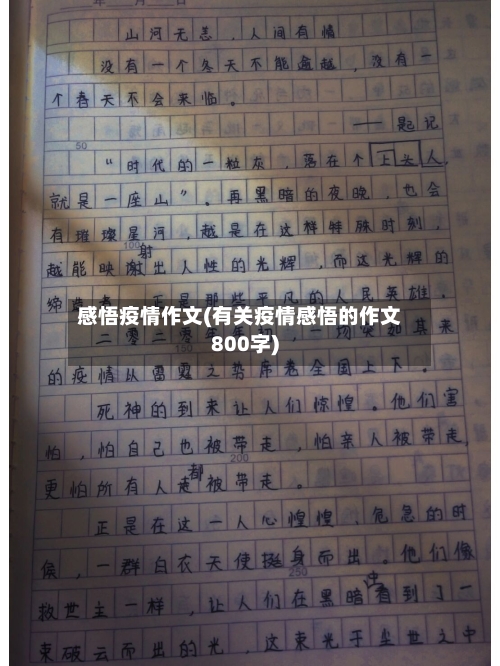 山河无恙，人间有情
没有一个冬天不能逾越，没有一
个春天不会来临。
——题记
50
“时代的一粒灰，落在个上头人，
就是一座山”。再黑暗的夜晚，也会
有璀璨星河，越是在这样特殊时刻，
100
射
越能映谢出人性的光辉，而这光辉的
缔造者，正是那些平凡的人民英雄。
感悟疫情作文(有关疫情感悟的作文
800字)
二零二零年
的疫情从雷霆之势席卷全国上下。
死神的到来让人们惊惶。他们害
怕，怕自己也被带走，怕亲人被带走，
200
都
更怕所有人走被带走。
正是在这一人心惶惶、危急的时
候，一群白衣天使挺身而出。他们像
250
中
救世主一样，让人们在黑暗看到了一
束破云而出的光，这束光于尘世之中